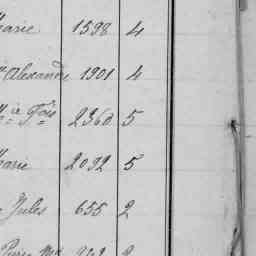 Marie 1598 4
Alexandre 1901 4
Fois 2360 5
Marie 2092 5
Jules 655 2